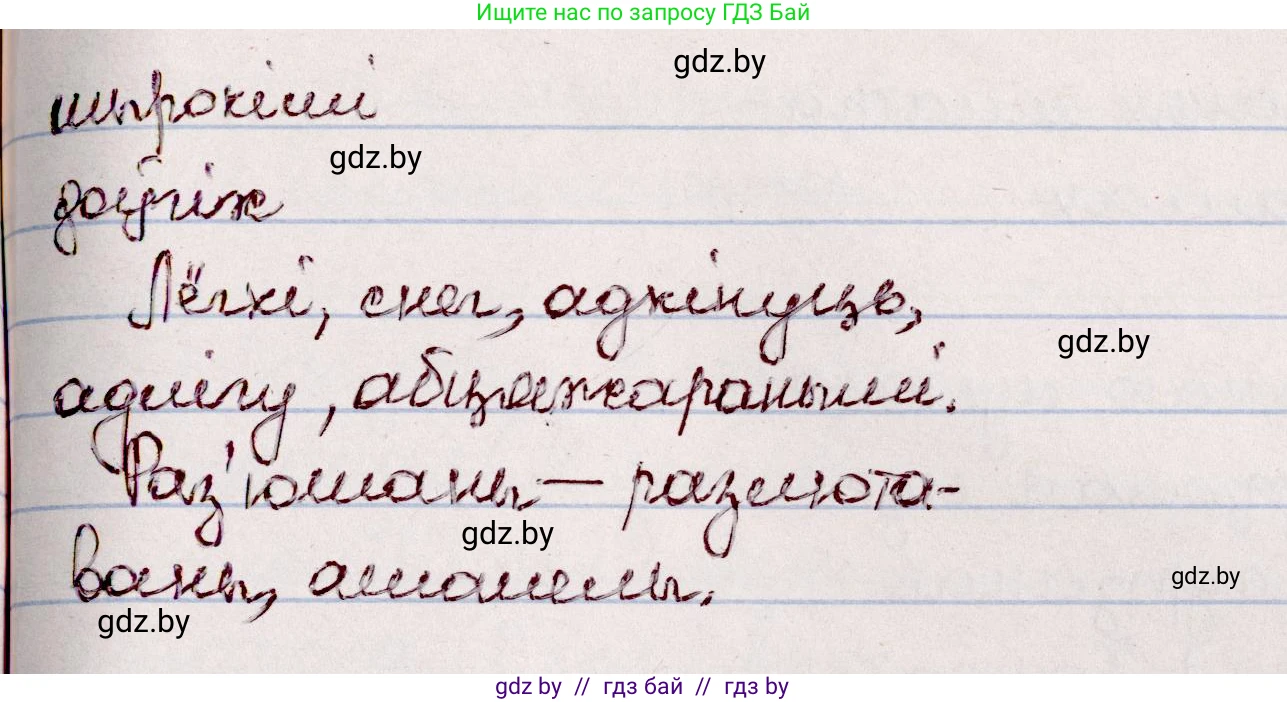 Ищите нас по запросу ГДЗ Бай
gdz.by
шырокімі
gdz.by
доўгіж
Лёгкі, снег, адкінуць,
gdz.by
адлігу, абцяжараныші.
Раз'юшаны — разлюта-
gdz.by
ваны, ашалелы.
gdz.by
gdz.by
gdz by // гдз бай // гдз by